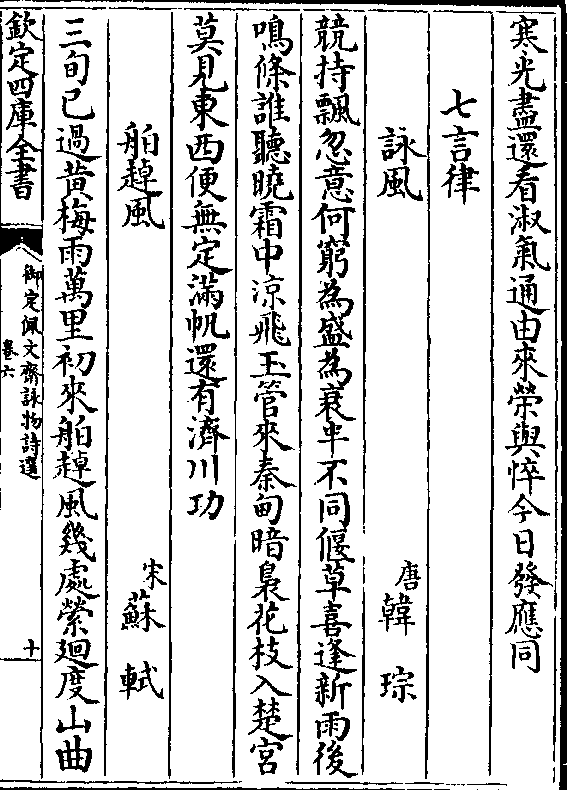 寒光盡還看淑氣通由來榮與悴今日發應同
七言律
詠風　唐韓琮
競持飄忽意何窮為盛為衰半不同偃草喜逢新雨後
鳴條誰聽曉霜中涼飛玉管來秦甸暗裊花枝入楚宮
莫見東西便無定滿帆還有濟川功
舶趠風　宋蘇軾
三旬已過黄梅雨萬里初來舶趠風幾處縈廻度山曲
欽定四庫全書
御定佩文齋詠物詩選
卷六
十